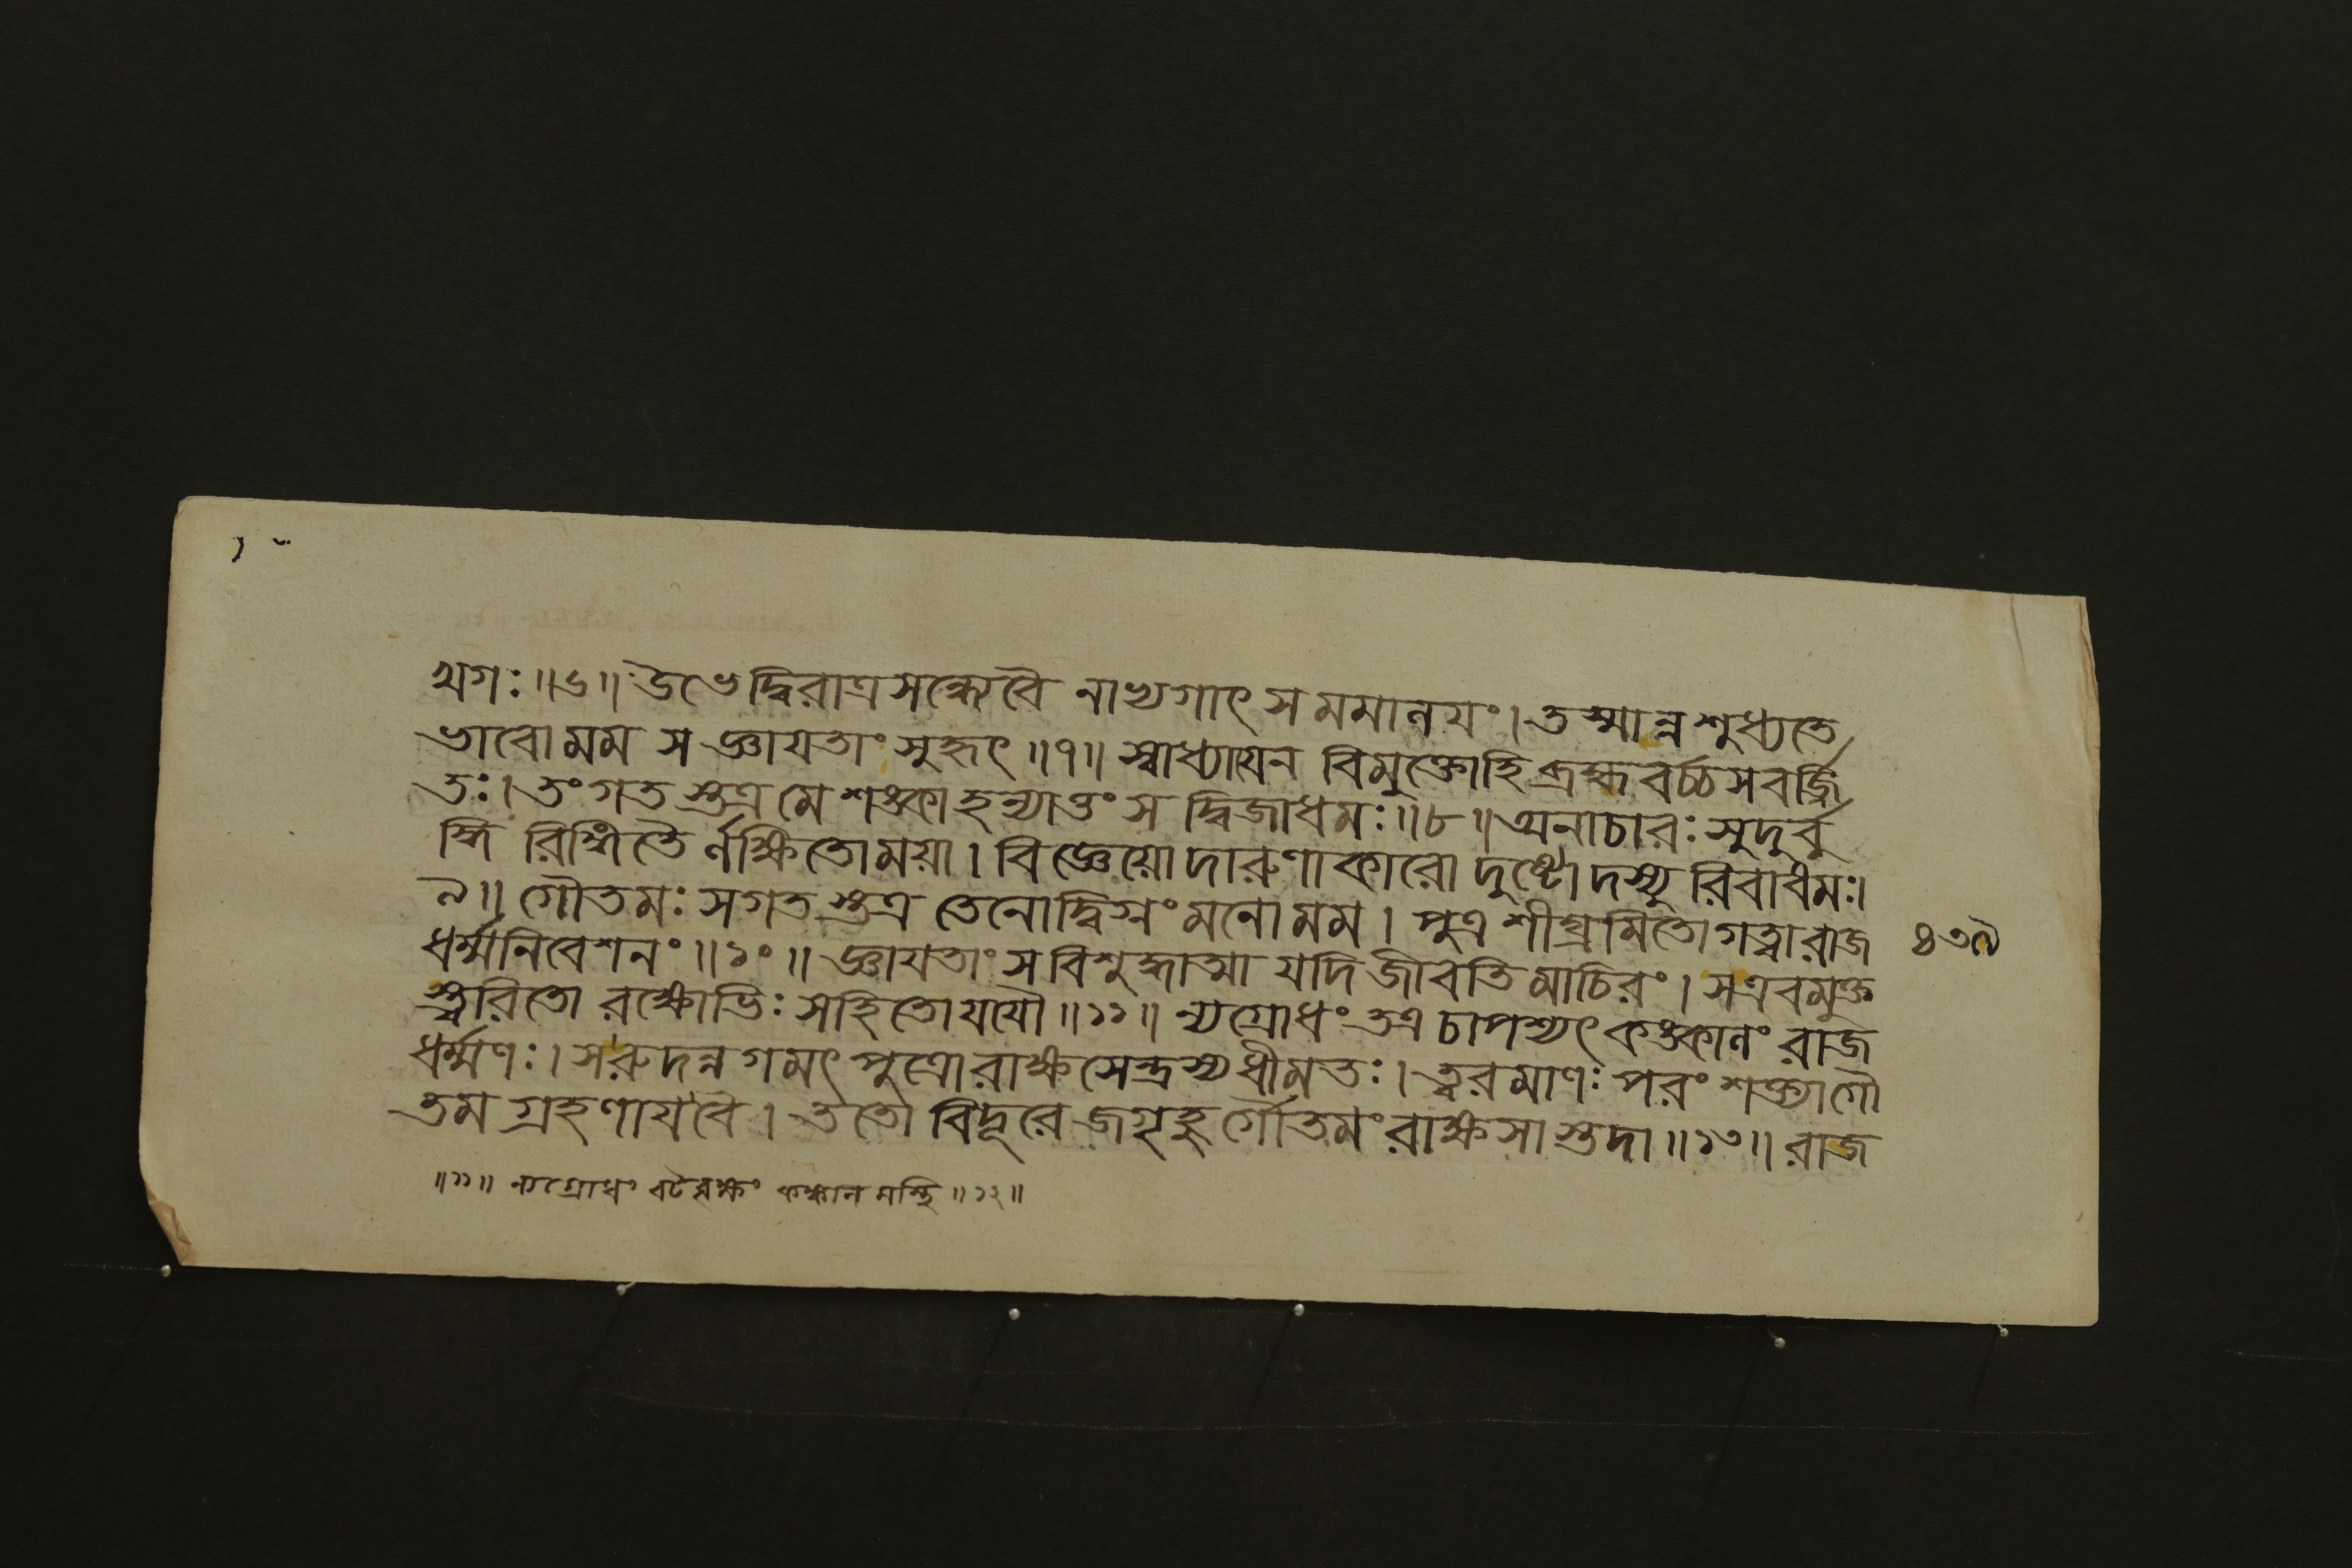 খগঃ ॥৬॥ উভে দ্বিরাত্রসন্ধ্যে বৈ নাখ্যগাৎ স মমালয়ং । তস্মান্ন শুধ্যতে
ভাবো মম স জ্ঞায়তাং সুহৃৎ ॥৭॥ স্বাধ্যায়েন বিমুক্তো হি ব্রহ্মবর্চ্চসবর্জ্জি
তঃ । তং গতস্তত্র মে শঙ্কা হন্যাত্তং স দ্বিজাধমঃ ॥৮॥ অনাচারঃ সুদুর্বু
দ্ধি রিঙ্গিতৈ র্লক্ষিতো ময়া । বিজ্ঞেয়ো দারুণাকারো দুষ্টো দস্যু রিবাধমঃ ।
৯॥ গৌতমঃ স গতস্তত্র তেনোদ্বিগ্নং মনো মম । পুত্র শীঘ্রমিতো গত্বা রাজ
ধর্ম্মনিবেশনং ॥১০॥ জ্ঞায়তাং স বিশুদ্ধাত্মা যদি জীবতি মাচিরং । স এবমুক্ত
স্ত্বরিতো রক্ষোভিঃ সহিতো যযৌ ॥১১॥ ন্যগ্রোধং তত্র চাপশ্যৎ কঙ্কালং রাজ
ধর্ম্মণঃ । স রুদন্নগমৎ পুত্রো রাক্ষসেন্দ্রস্য ধীমতঃ । ত্বরমাণঃ পরং শক্ত্যা গৌ
তম গ্রহণায় বৈ । ততো বিদূরে জগৃহু র্গৌতমং রাক্ষসাস্তদা ॥১৩॥ রাজ
॥১১॥ ন্যগ্রোধং বটবৃক্ষং কঙ্কাল মস্থি ॥১২॥
৪৩৯